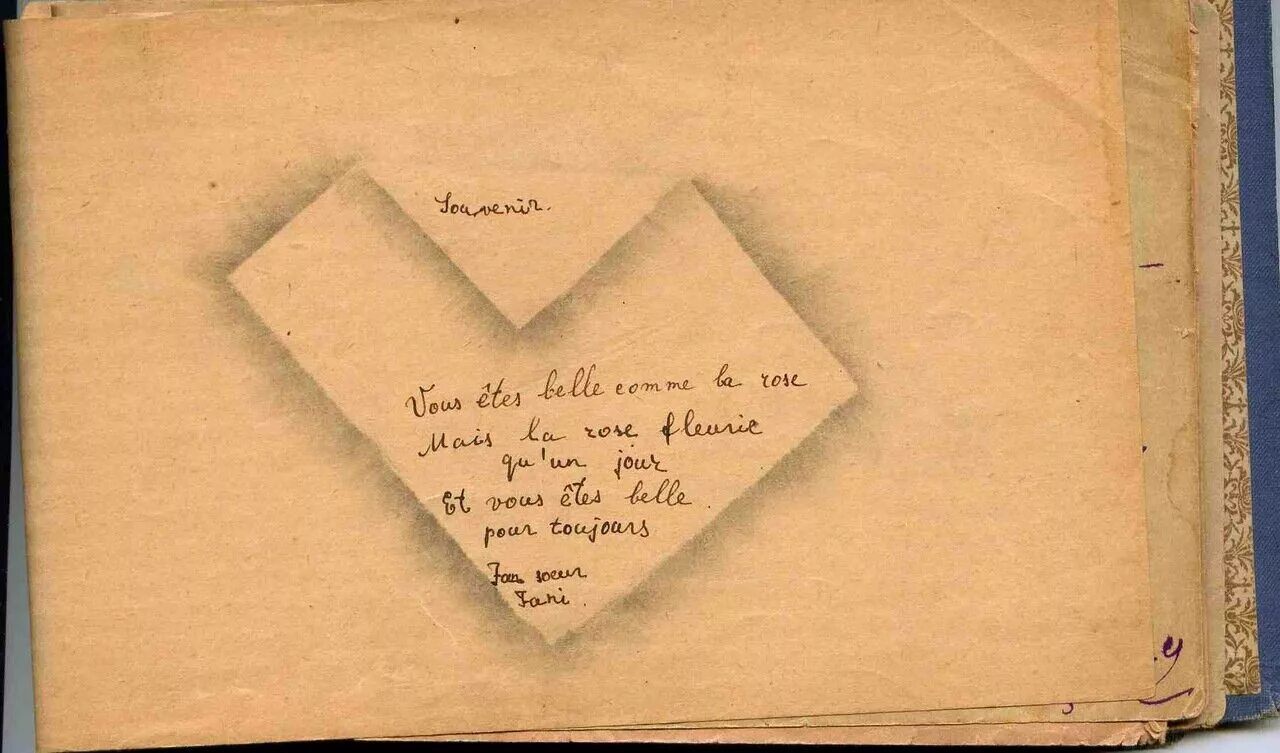 Souvenir.
Vous êtes belle comme la rose
Mais la rose fleurie
qu'un jour
Et vous êtes belle
pour toujours
soeur
Fani